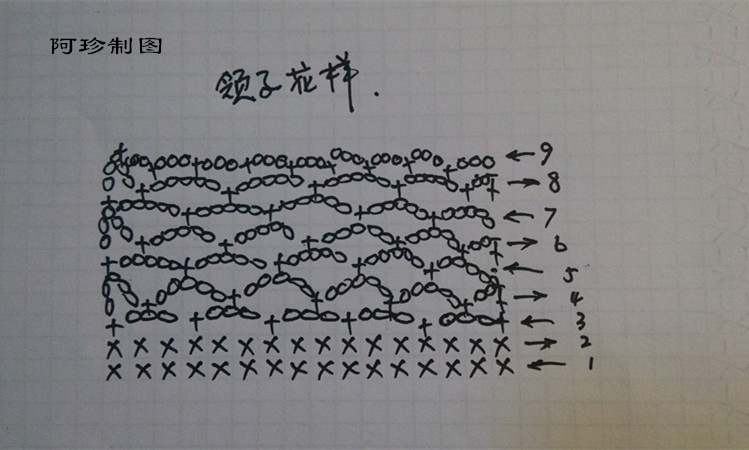 阿珍制图
领子花样.
9
8
7
6
5
4
3
2
1